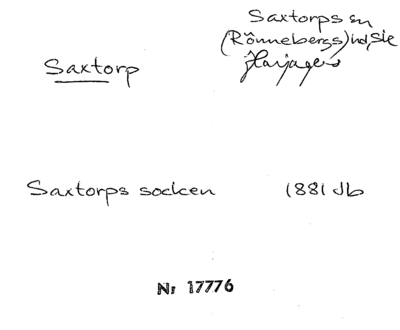 Saxtorps sn
(Rönnebergs) hd, Ske
Harjagers
Saxtorp
Saxtorps socken 1881 db
Nr 17776